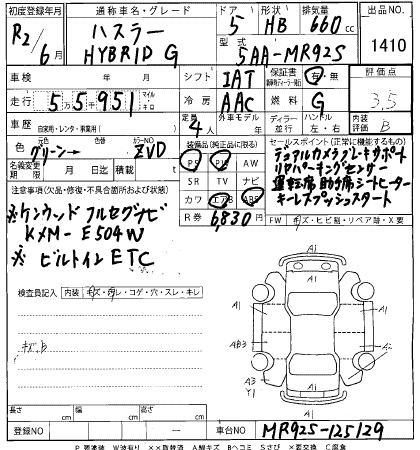 初度登録年月 通称車名・グレード ドア 形状 排気量 出品NO.
R2/6月 ハスラー HYBRID G 5 HB 660cc
型式 5AA-MR92S 1410
車検 年 月 シフト IAT 保証書 有・無 評価点
走行 55,951 マイル キロ 冷房 AAC 燃料 G 3.5
車歴 自家用・レンタ・事業用( ) 定員 4人 外車モデル 年 ディーラー 並行 ハンドル 左・右 内装評価 B
色 グリーン→ 色替 カラーNO ZVD
装備品(純正品に限る) セールスポイント(正常に機能するもの)
名義変更期限 月 日 積載 t
PS PW AW
SR TV ナビ
カワ エアB ABS
R券 6,830円
デュアルカメラブレーキサポート
リヤパーキングセンサー
運転席助手席シートヒーター
キーレスプッシュスタート
FW キズ・ヒビ割・リペア跡・X要
注意事項(欠品・修復・不具合箇所および状態)
※ケンウッド フルセグナビ
KXM-E504W
※ビルトインETC
検査員記入 内装 キズ・切レ・コゲ・穴・スレ・キレ
キズB
A1
A1 A1
AB3 A1
A3 Y1 A2
A1
長さ cm 幅 cm 高さ cm
登録NO ー 車台NO MR92S-125129
P 要塗装 W波有り ××取替済 A線キズ Bヘコミ Sさび ×要交換 C腐食